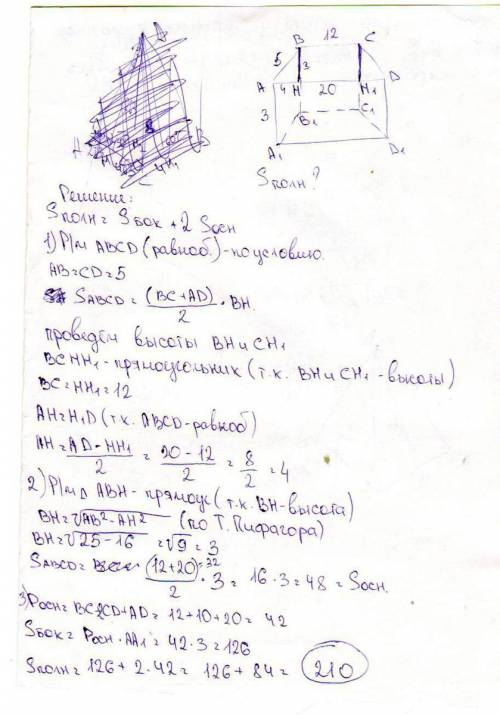 B 12 C
5 3
A 4 H 20 H₁ D
3 B₁ C₁
A₁ D₁
Sполн?
Решение:
Sполн = Sбок + 2 Sосн
1) Р/м ABCD (равноб.) - по условию.
AB=CD=5
SABCD = (BC+AD)/2 · BH.
проведём высоты BH и CH₁
BCHH₁ - прямоугольник (т.к. BH и CH₁ - высоты)
BC=HH₁=12
AH=H₁D (т.к. ABCD-равноб)
AH = (AD-HH₁)/2 = (20-12)/2 = 8/2 = 4
2) Р/м Δ ABH - прямоуг (т.к. BH-высота)
BH=√(AB²-AH²) (по Т. Пифагора)
BH=√(25-16) = √9 = 3
SABCD = (12+20)=32/2 · 3 = 16·3=48 = Sосн.
3) Pосн = BC+2CD+AD = 12+10+20 = 42
Sбок = Pосн·AA₁ = 42·3=126
Sполн = 126 + 2·42 = 126 + 84 = 210